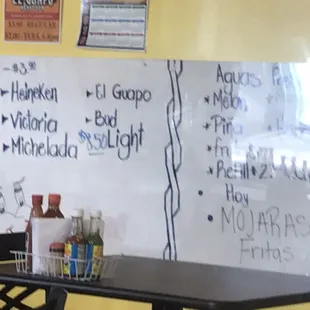 -$3.50
Heineken
Victoria
Michelada
El Guapo
Bud
$8.50 Light
Aguas
Melon
Piña
Refill
Hoy
MOJARAS
Fritas